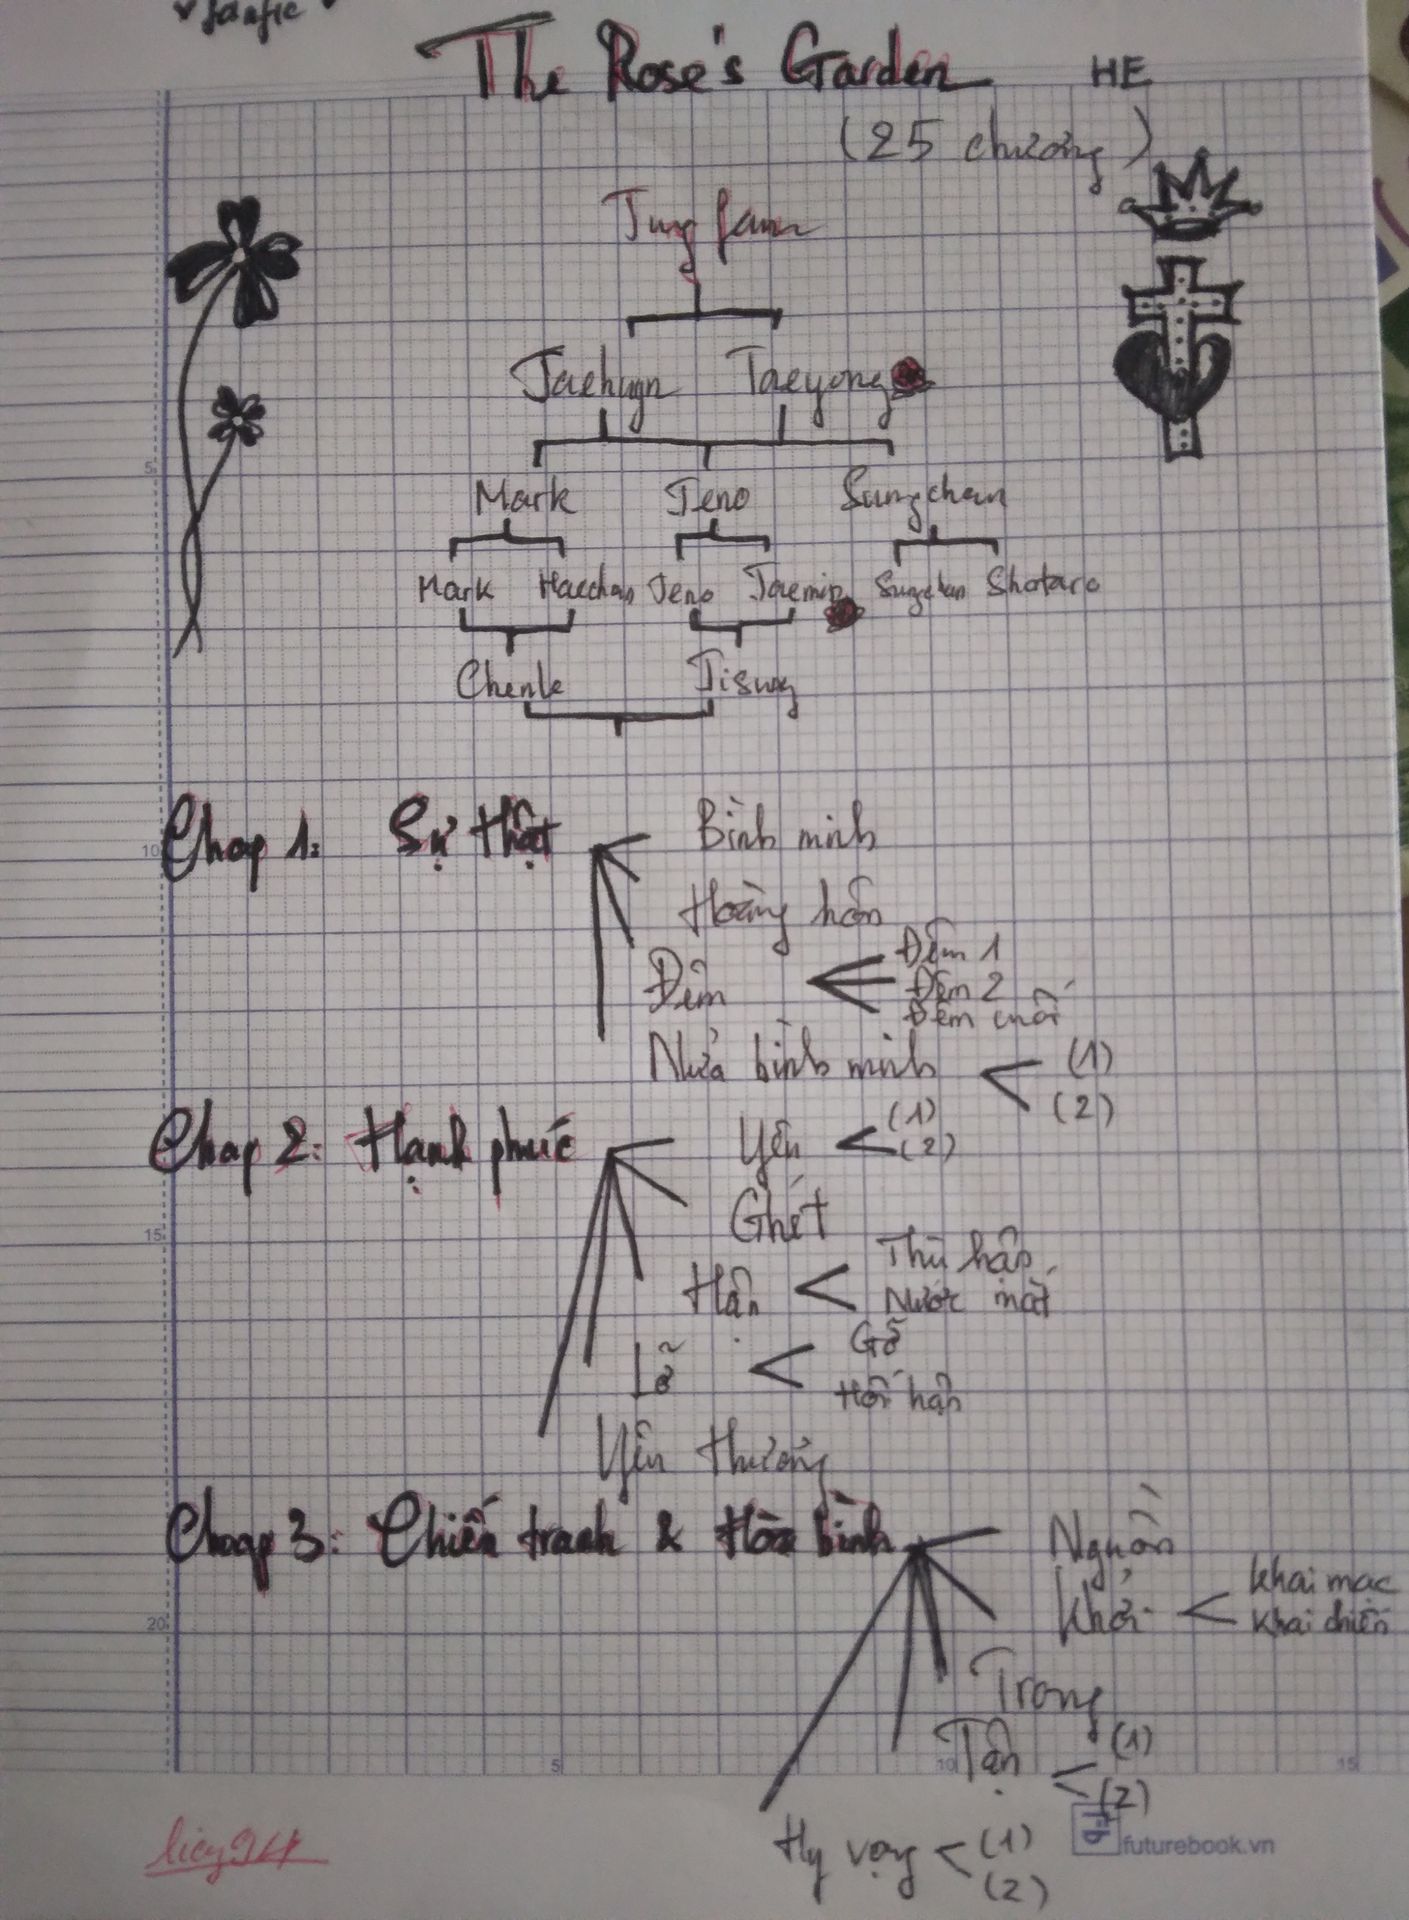 fanfic
The Rose's Garden HE
(25 chương)
Jung fam
Jaehyun Taeyong
Mark Jeno Sungchan
Mark Haechan Jeno Jaemin Sungchan Shotaro
Chenle Jisung
Chap 1: Sự thật
Bình minh
Hoàng hôn
Đêm
Đêm 1
Đêm 2
Đêm cuối
Nửa bình minh
(1)
(2)
Chap 2: Hạnh phúc
Yên
(1)
(2)
Ghét
Hận
Thù hận
Nước mắt
Lỡ
Gỡ
Hối hận
Yên thương
Chap 3: Chiến tranh & Hòa bình
Nguồn
Khởi
Khai mạc
Khai chiến
Trong
Tận
(1)
(2)
Hy vọng
(1)
(2)
5
10
15
20
5
10
15
futurebook.vn